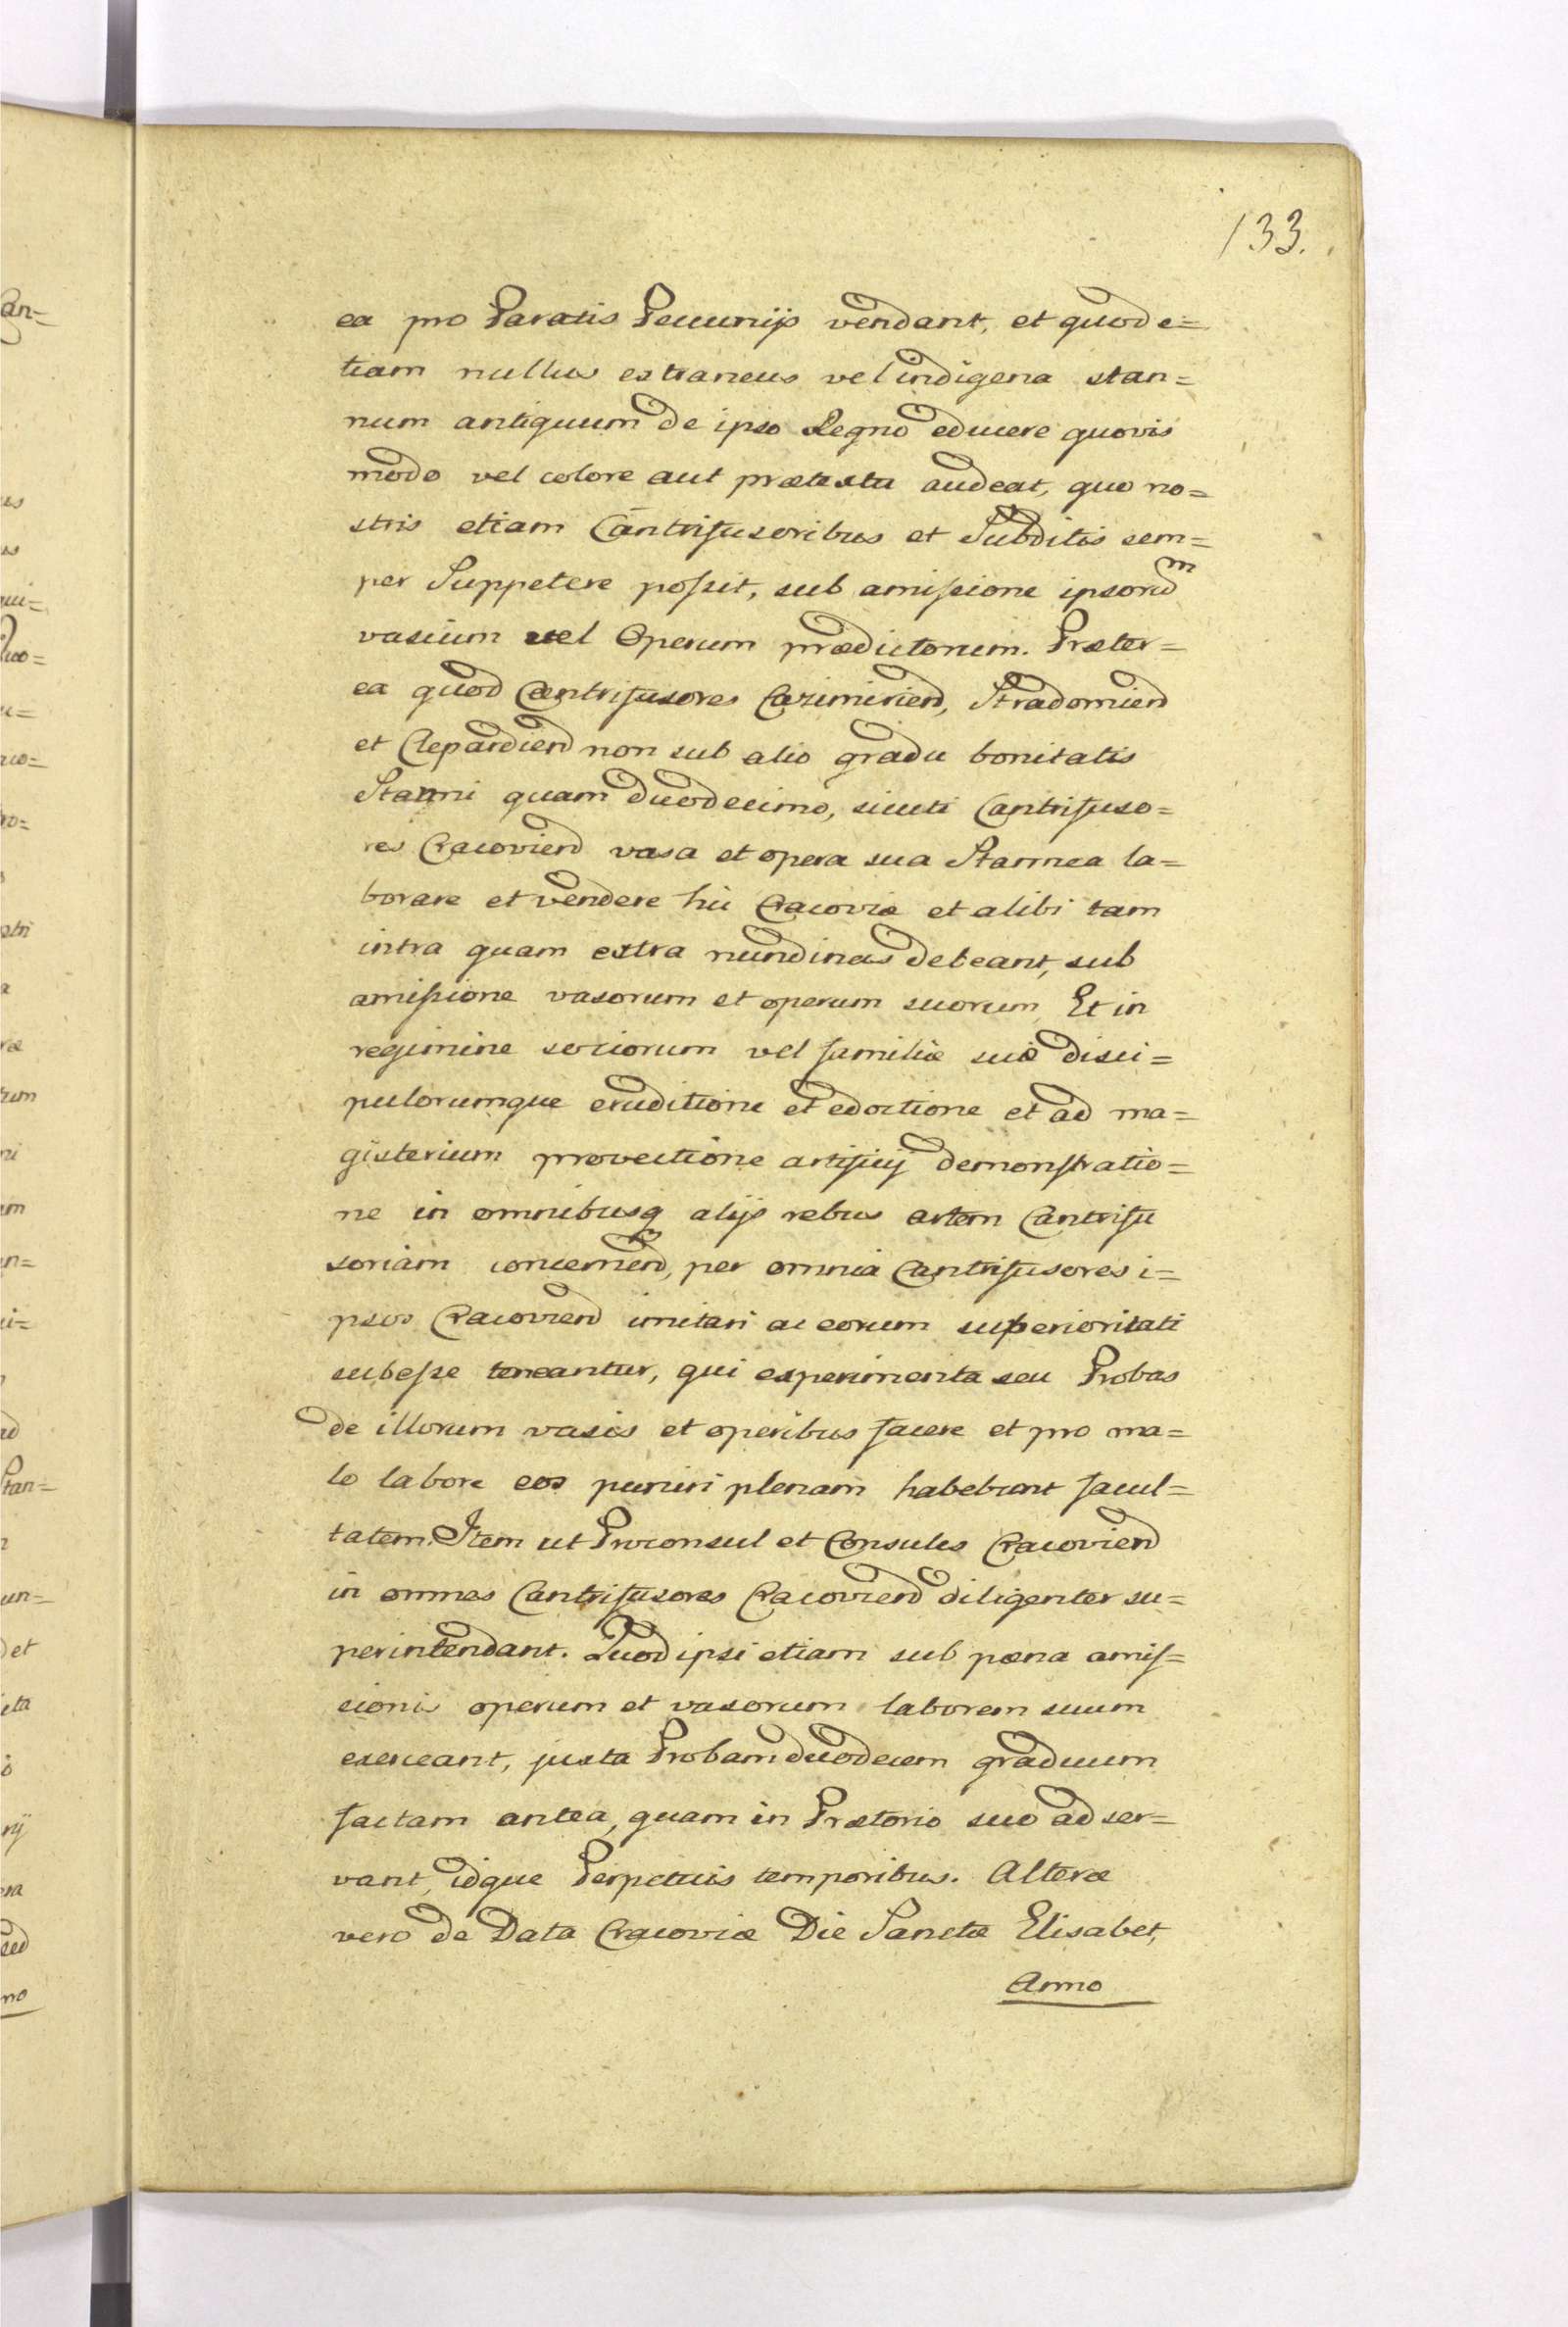 133.
ea pro Paratis Pecunijs vendant, et quod e=
tiam nullus extraneus vel indigena stan=
num antiquum de ipso Regno educere quovis
modo vel colore aut prætextu audeat, quo no=
stris etiam Cantrifusoribus et Subditis sem=
per Suppetere possit, sub amissione ipsorum
vasium vel Operum prædictorum. Præter=
ea quod Cantrifusores Cazimirien, Stradomien
et Clepardien non sub alio gradu bonitatis
Stanni quam duodecimo, sicuti Cantrifuso=
res Cracovien vasa et opera sua Stannea la=
borare et vendere hic Cracoviæ et alibi tam
intra quam extra nundinas debeant, sub
amissione vasorum et operum suorum, Et in
regimine sociorum vel familiæ suæ disci=
pulorumque eruditione et edoctione et ad ma=
gisterium provectione artificij demonstratio=
ne in omnibusq alijs rebus artem Cantrifu
soriam concernen, per omnia Cantrifusores i=
psos Cracovien imitari ac eorum superioritati
subesse teneantur, qui experimenta seu Probas
de illorum vasis et operibus facere et pro ma=
lo labore eos puniri plenam habebunt facul=
tatem. Item ut Proconsul et Consules Cracovien
in omnes Cantrifusores Cracovien diligenter su=
perintendant. Quod ipsi etiam sub pœna amis=
sionis operum et vasorum laborem suum
exerceant, juxta Probam duodecem graduum
factam antea, quam in Prætorio suo adser=
vant, idque Perpetuis temporibus. Alteræ
vero de Data Cracoviæ Die Sanctæ Elisabet,
Anno